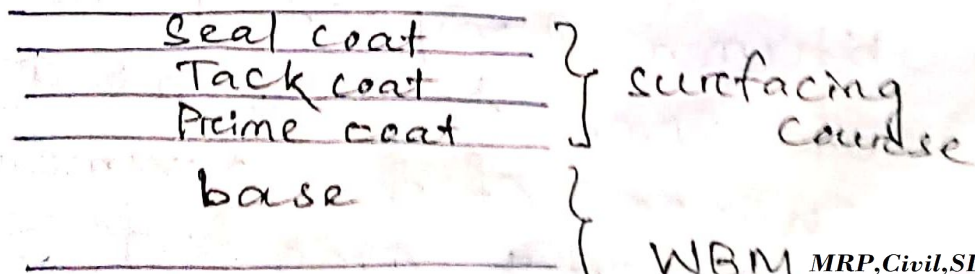 Seal coat
Tack coat
Preime coat
surefacing
Course
base
WBM
MRP,Civil,SI